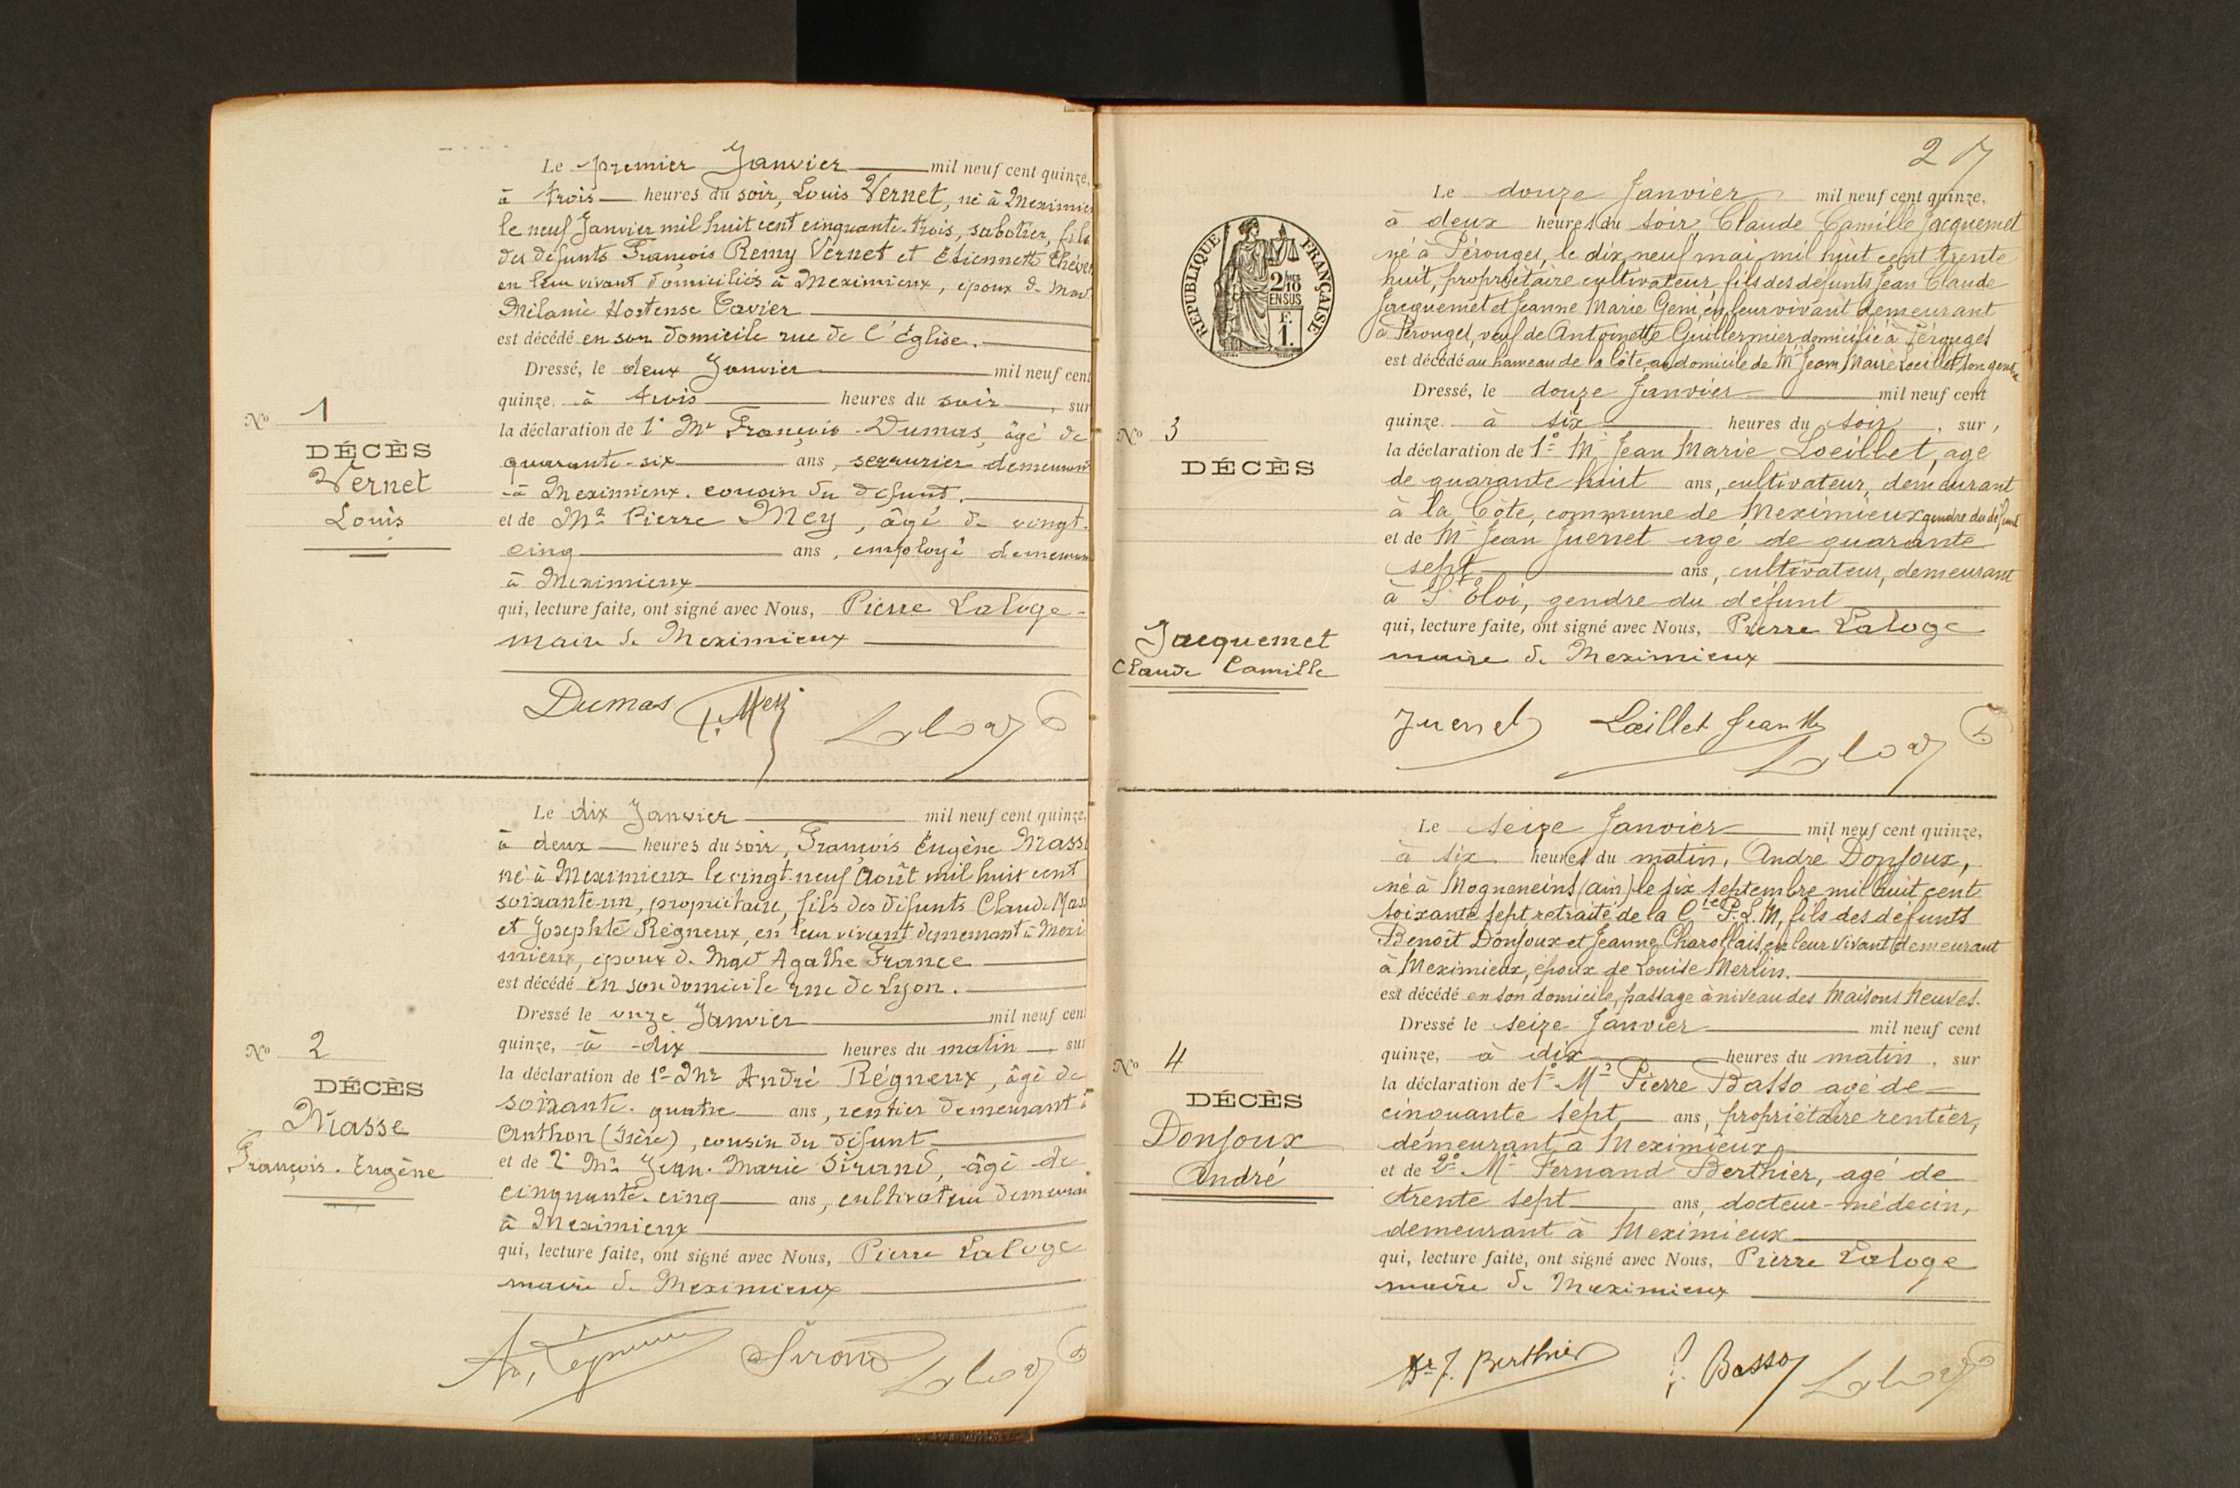 Le premier Janvier mil neuf cent quinze,
à trois heures du soir, Louis Vernet, né à Meximieu
le neuf Janvier mil huit cent cinquante-trois, sabotier, fils
des défunts François Remy Vernet et Etiennette
en leur vivant domiciliés à Meximieux, époux de
Mélanie Hortense Tavier
est décédé en son domicile rue de l'Église.
Dressé, le deux Janvier mil neuf cent
quinze à trois heures du soir, sur
la déclaration de 1° Mr François Dumas, âgé de
quarante-six ans, serrurier demeurant
à Meximieux. cousin du défunt.
et de Mr Pierre Mey, âgé de vingt-
cinq ans, employé demeuran
à Meximieux
qui, lecture faite, ont signé avec Nous, Pierre Laloge
maire de Meximieux
Nº 1
DÉCÈS
Vernet
Louis
Dumas P. Mey Laloge
Le dix Janvier mil neuf cent quinze,
à deux heures du soir, François Eugène Mass
né à Meximieux le vingt-neuf Août mil huit cent
soixante-un, propriétaire, fils des défunts Claude Mas
et Josephte Régneux, en leur vivant demeurant à Mexi
mieux, époux de Mad Agathe France
est décédé en son domicile rue de Lyon.
Dressé le onze Janvier mil neuf cen
quinze, à dix heures du matin, sur
la déclaration de 1° Mr André Régneux, âgé de
soixante-quatre ans, rentier demeurant à
Anthon (Isère), cousin du défunt
et de 2° Mr Jean-Marie Sirand, âgé de
cinquante-cinq ans, cultivateur demeuran
à Meximieux
qui, lecture faite, ont signé avec Nous, Pierre Laloge
maire de Meximieux
Nº 2
DÉCÈS
Masse
François-Eugène
Sirand Laloge
2
Le douze Janvier mil neuf cent quinze,
à deux heures du soir, Claude Camille Jacquemet
né à Pérouges, le dix neuf mai mil huit cent trente
huit, propriétaire cultivateur, fils des défunts Jean Claude
Jacquemet et Jeanne Marie Geni, en leur vivant demeurant
à Pérouges, veuf de Antoinette Guillermier, domicilié à Pérouges
est décédé au hameau de la Côte, au domicile de Mr Jean Marie Loeillet, son gendre
RÉPUBLIQUE FRANÇAISE
2/10
EN SUS
F.
1.
Dressé, le douze Janvier mil neuf cent
quinze à six heures du soir, sur,
la déclaration de 1° Mr Jean Marie Loeillet, age
de quarante huit ans, cultivateur, demeurant
à la Côte, commune de Meximieux gendre du défunt
et de Mr Jean Juenet agé de quarante
sept ans, cultivateur, demeurant
à St Eloi, gendre du défunt
qui, lecture faite, ont signé avec Nous, Pierre Laloge
maire de Meximieux
Nº 3
DÉCÈS
Jacquemet
Claude Camille
Juenet Lœillet Jean M Laloge
Le seize Janvier mil neuf cent quinze,
à six heures du matin, André Donjoux,
né à Mogneneins (ain) le six septembre mil huit cent
soixante sept retraité de la Cie P.L.M, fils des défunts
Benoît Donjoux et Jeanne Charollais, en leur vivant demeurant
à Meximieux, époux de Louise Merlin.
est décédé en son domicile, passage à niveau des Maisons Neuves.
Dressé le seize Janvier mil neuf cent
quinze, à dix heures du matin, sur
la déclaration de 1° Mr Pierre Basso agé de
cinquante sept ans, propriétaire rentier,
demeurant à Meximieux
et de 2° Mr Fernand Berthier, agé de
trente sept ans, docteur-médecin,
demeurant à Meximieux
qui, lecture faite, ont signé avec Nous, Pierre Laloge
maire de Meximieux
Nº 4
DÉCÈS
Donjoux
André
Dr F. Berthier P. Basso Laloge